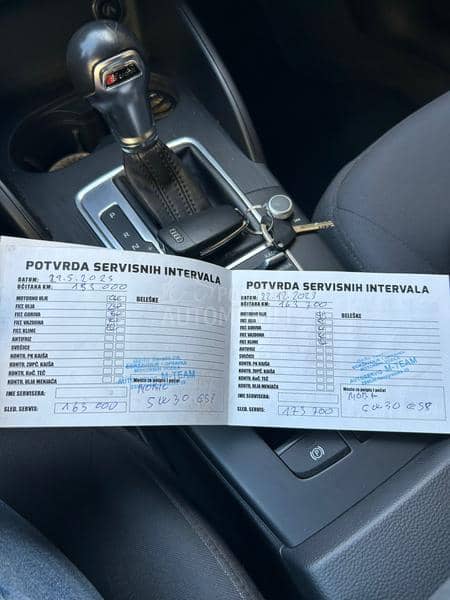 P
R
N
POTVRDA SERVISNIH INTERVALA
DATUM: 29.5.2023
OČITANA KM: 153.000
MOTORNO ULJE
FILT. ULJA
FILT. GORIVA
FILT. VAZDUHA
FILT. KLIME
ANTIFRIZ
SVEĆICE
KONTR. PK KAIŠA
KONTR. ZUPČ. KAIŠA
KONTR. KOČ. TEČ
KONTR. ULJA MENJAČA
IME SERVISERA:
SLED. SERVIS: 163 000
BELEŠKE
M-TEAM
Mesto za potpis i pečat
5W30 GS8
POTVRDA SERVISNIH INTERVALA
DATUM: 22.12.2023
OČITANA KM: 163.700
MOTORNO ULJE
FILT. ULJA
FILT. GORIVA
FILT. VAZDUHA
FILT. KLIME
ANTIFRIZ
SVEĆICE
KONTR. PK KAIŠA
KONTR. ZUPČ. KAIŠA
KONTR. KOČ. TEČ
KONTR. ULJA MENJAČA
IME SERVISERA:
SLED. SERVIS: 173 700
BELEŠKE
M-TEAM
Mesto za potpis i pečat
5W30 GS8